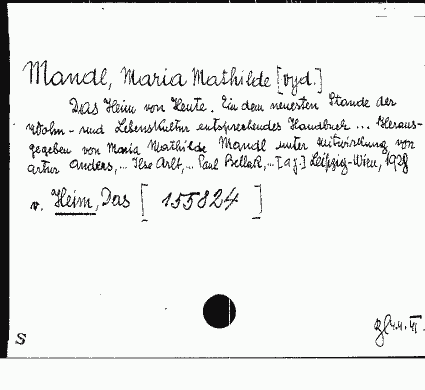 Mandl, Maria Mathilde [vyd.]
Das Heim von Heute. Ein dem neuesten Stande der
Wohn- und Lebenskultur entsprechendes Handbuch ... Heraus-
gegeben von Maria Mathilde Mandl unter Mitwirkung von
Artur Anders,... Ilse Arlt,... Paul Bellak,... [a j.] Leipzig-Wien, 1928
v. Heim, Das [ 155824 ]
S